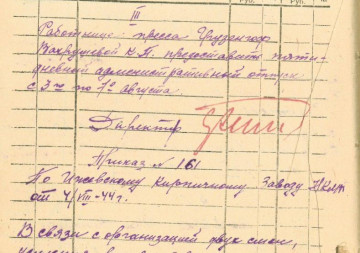 III
Работнице пресса Грузенкор
Вахрушевой К.П. предоставить пяти-
дневный административный отпуск
с 3-го по 1º августа.
Директор
Приказ № 161
По Ижевскому кирпичному заводу НКОМ
от 4/VIII-44 г.
В связи с организацией двух смен,